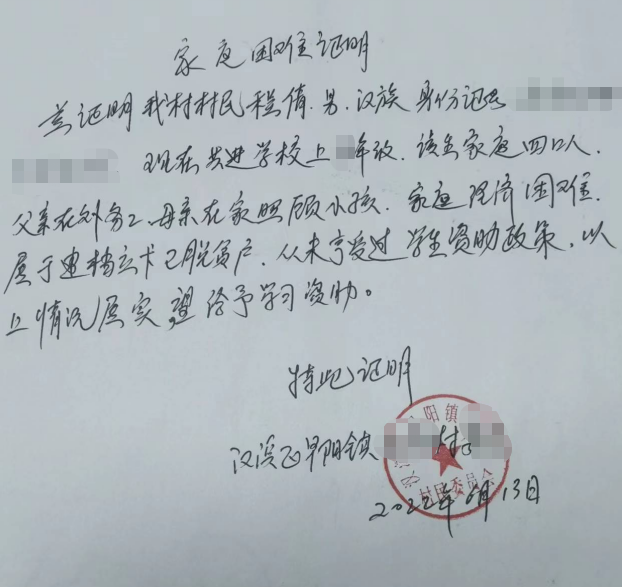 家庭困难证明
兹证明我村村民程倩.男.汉族身份证号
现在共进学校上 年级.该生家庭四口人.
父亲在外务工.母亲在家照顾小孩.家庭经济困难.
属于建档立卡已脱贫户.从未享受过学生资助政策.以
上情况属实,望给予学习资助。
特此证明
汉滨区早阳镇 村
阳镇
村民委员会
2022年 月13日